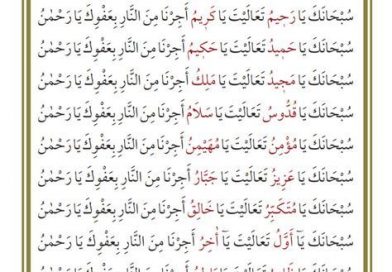 سُبْحَانَكَ يَا رَحِيمُ تَعَالَيْتَ يَا كَرِيمُ أَجِرْنَا مِنَ النَّارِ بِعَفْوِكَ يَا رَحْمٰنُ
سُبْحَانَكَ يَا حَمِيدُ تَعَالَيْتَ يَا حَكِيمُ أَجِرْنَا مِنَ النَّارِ بِعَفْوِكَ يَا رَحْمٰنُ
سُبْحَانَكَ يَا مَجِيدُ تَعَالَيْتَ يَا مَلِكُ أَجِرْنَا مِنَ النَّارِ بِعَفْوِكَ يَا رَحْمٰنُ
سُبْحَانَكَ يَا قُدُّوسُ تَعَالَيْتَ يَا سَلَامُ أَجِرْنَا مِنَ النَّارِ بِعَفْوِكَ يَا رَحْمٰنُ
سُبْحَانَكَ يَا مُؤْمِنُ تَعَالَيْتَ يَا مُهَيْمِنُ أَجِرْنَا مِنَ النَّارِ بِعَفْوِكَ يَا رَحْمٰنُ
سُبْحَانَكَ يَا عَزِيزُ تَعَالَيْتَ يَا جَبَّارُ أَجِرْنَا مِنَ النَّارِ بِعَفْوِكَ يَا رَحْمٰنُ
سُبْحَانَكَ يَا مُتَكَبِّرُ تَعَالَيْتَ يَا خَالِقُ أَجِرْنَا مِنَ النَّارِ بِعَفْوِكَ يَا رَحْمٰنُ
سُبْحَانَكَ يَآ أَوَّلُ تَعَالَيْتَ يَآ اٰخِرُ أَجِرْنَا مِنَ النَّارِ بِعَفْوِكَ يَا رَحْمٰنُ